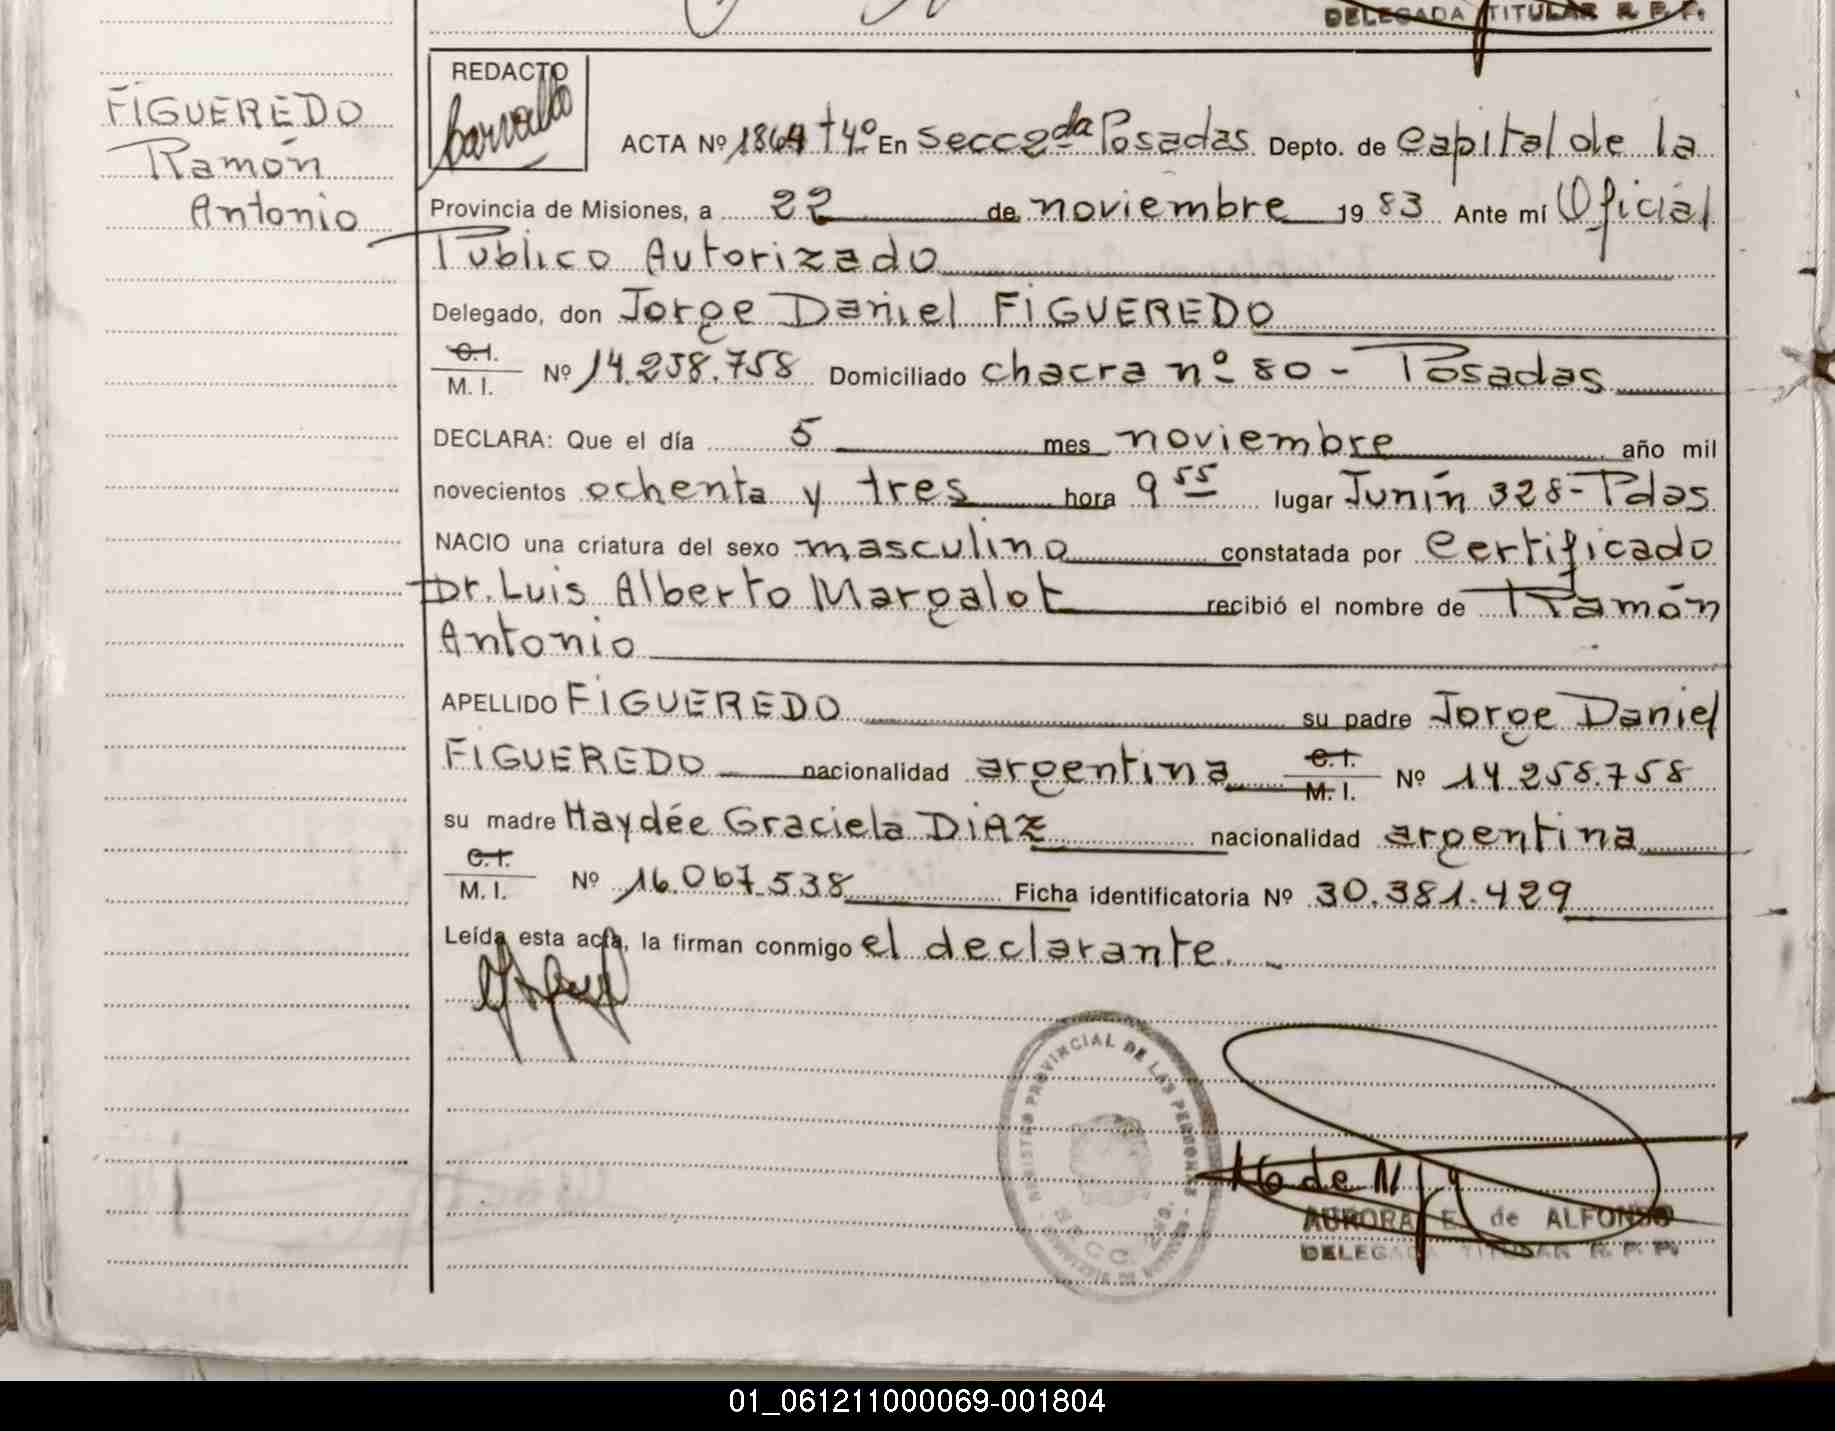 DELEGADA TITULAR R. P. P.
REDACTO
FIGUEREDO
Ramón
Antonio
ACTA Nº 1864 t 4º En Secc 2da Posadas Depto. de Capital de la
Provincia de Misiones, a 22 de noviembre 19 83 Ante mí Oficial
Público Autorizado
Delegado, don Jorge Daniel FIGUEREDO
C.I.
M. I. Nº 14.258.758 Domiciliado chacra nº 80 - Posadas
DECLARA: Que el día 5 mes noviembre año mil
novecientos ochenta y tres hora 9 55 lugar Junín 328 - Pdas
NACIO una criatura del sexo masculino constatada por Certificado
Dr. Luis Alberto Margalot recibió el nombre de Ramón
Antonio
APELLIDO FIGUEREDO su padre Jorge Daniel
FIGUEREDO nacionalidad argentina C.I. M. I. Nº 14.258.758
su madre Haydée Graciela DIAZ nacionalidad argentina
C.I.
M. I. Nº 16.067.538 Ficha identificatoria Nº 30.381.429
Leída esta acta, la firman conmigo el declarante.
REGISTRO PROVINCIAL DE LAS PERSONAS
SECC. 2da.
AURORA E. de ALFONSO
DELEGADA TITULAR R. P. P.
01_061211000069-001804